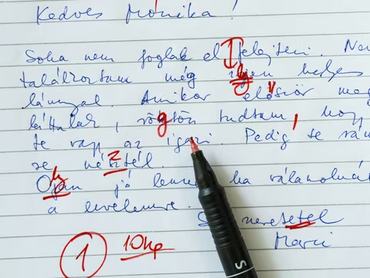 Kedves Mónika!
Soha nem foglak el felejteni. Nem
találkoztam még ilyen helyes
lánnyal. Amikor elősőr meg
láttalak, rögtön tudtam, hogy
te vagy az igazi. Pedig te rám
se néztél.
Ojan jó lenne, ha válaszolnál
a levelemre.
Szeretetel
Marci
1 10 kp
S